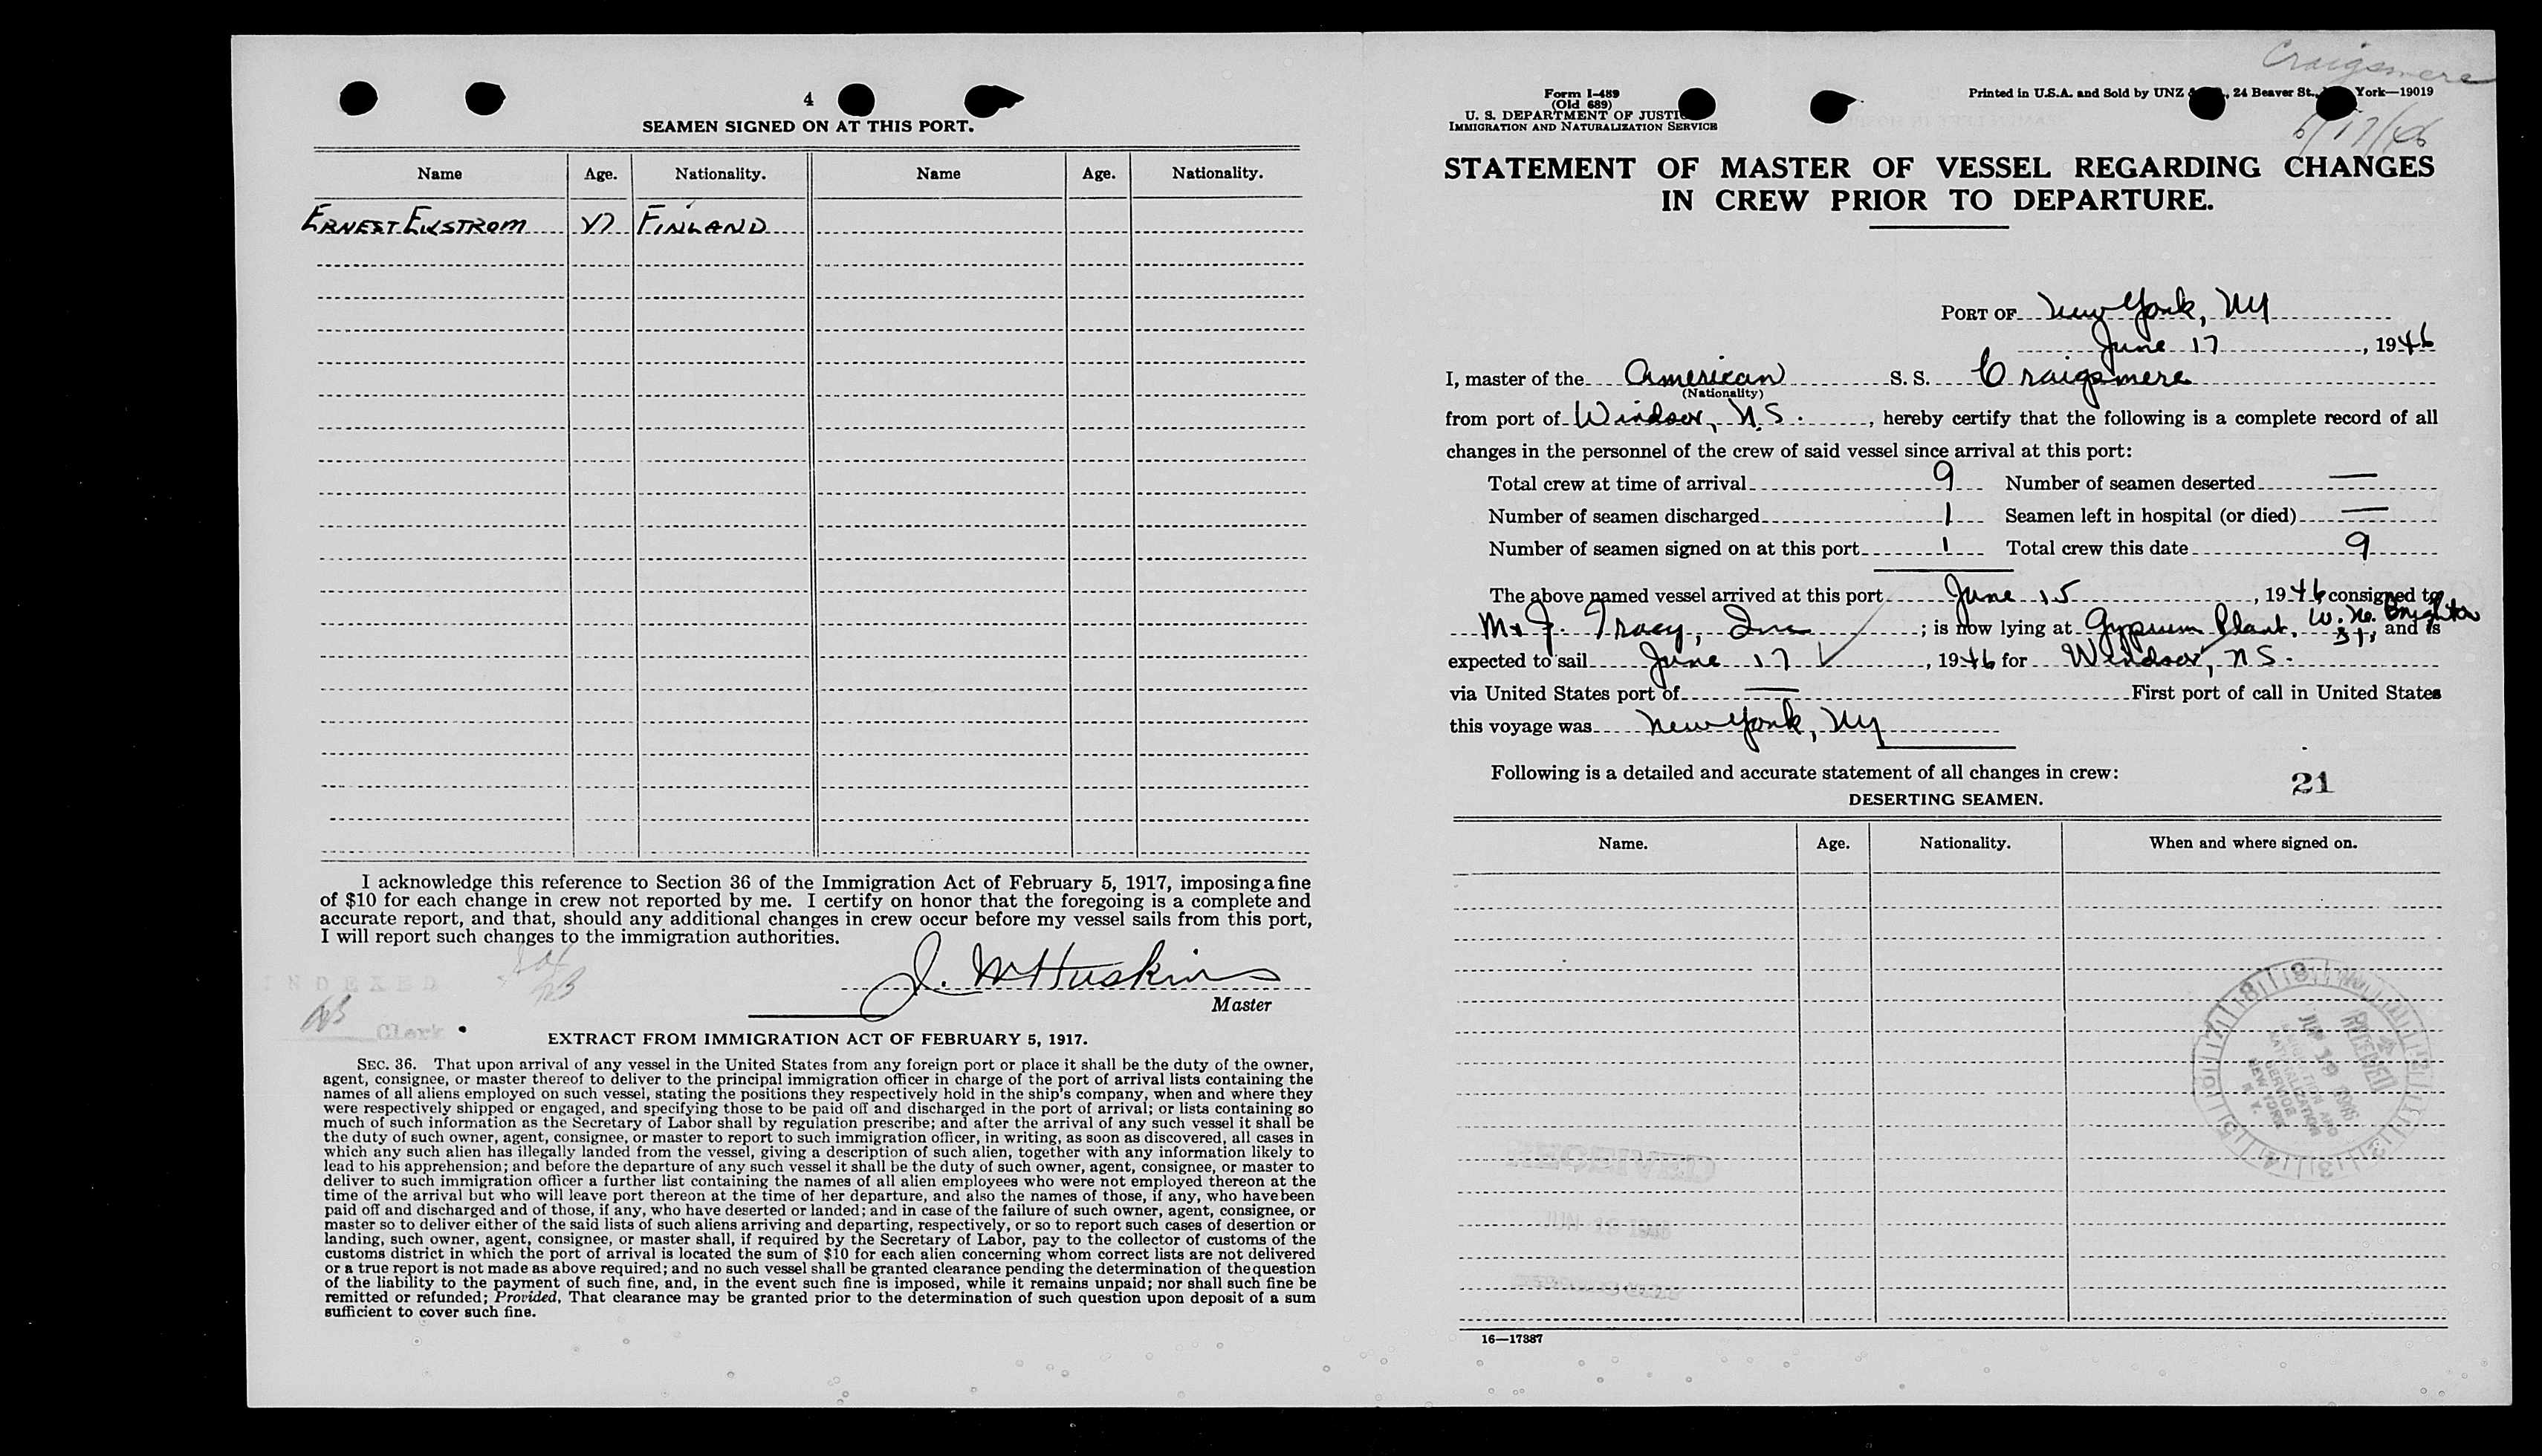 4
SEAMEN SIGNED ON AT THIS PORT.
Name Age. Nationality. Name Age. Nationality.
ERNEST EKSTROM 47 FINLAND
I acknowledge this reference to Section 36 of the Immigration Act of February 5, 1917, imposing a fine
of $10 for each change in crew not reported by me. I certify on honor that the foregoing is a complete and
accurate report, and that, should any additional changes in crew occur before my vessel sails from this port,
I will report such changes to the immigration authorities.
INDEXED
J. M Huskins
Master
Clerk
EXTRACT FROM IMMIGRATION ACT OF FEBRUARY 5, 1917.
SEC. 36. That upon arrival of any vessel in the United States from any foreign port or place it shall be the duty of the owner,
agent, consignee, or master thereof to deliver to the principal immigration officer in charge of the port of arrival lists containing the
names of all aliens employed on such vessel, stating the positions they respectively hold in the ship's company, when and where they
were respectively shipped or engaged, and specifying those to be paid off and discharged in the port of arrival; or lists containing so
much of such information as the Secretary of Labor shall by regulation prescribe; and after the arrival of any such vessel it shall be
the duty of such owner, agent, consignee, or master to report to such immigration officer, in writing, as soon as discovered, all cases in
which any such alien has illegally landed from the vessel, giving a description of such alien, together with any information likely to
lead to his apprehension; and before the departure of any such vessel it shall be the duty of such owner, agent, consignee, or master to
deliver to such immigration officer a further list containing the names of all alien employees who were not employed thereon at the
time of the arrival but who will leave port thereon at the time of her departure, and also the names of those, if any, who have been
paid off and discharged and of those, if any, who have deserted or landed; and in case of the failure of such owner, agent, consignee, or
master so to deliver either of the said lists of such aliens arriving and departing, respectively, or so to report such cases of desertion or
landing, such owner, agent, consignee, or master shall, if required by the Secretary of Labor, pay to the collector of customs of the
customs district in which the port of arrival is located the sum of $10 for each alien concerning whom correct lists are not delivered
or a true report is not made as above required; and no such vessel shall be granted clearance pending the determination of the question
of the liability to the payment of such fine, and, in the event such fine is imposed, while it remains unpaid; nor shall such fine be
remitted or refunded; Provided, That clearance may be granted prior to the determination of such question upon deposit of a sum
sufficient to cover such fine.
Craigsmere
6/17/46
Form I-489
(Old 689)
U. S. DEPARTMENT OF JUSTI
IMMIGRATION AND NATURALIZATION SERVICE
Printed in U.S.A. and Sold by UNZ , 24 Beaver St., York—19019
STATEMENT OF MASTER OF VESSEL REGARDING CHANGES
IN CREW PRIOR TO DEPARTURE.
PORT OF New York, NY
June 17, 1946
I, master of the American S. S. Craigsmere
(Nationality)
from port of Windsor, N.S., hereby certify that the following is a complete record of all
changes in the personnel of the crew of said vessel since arrival at this port:
Total crew at time of arrival 9 Number of seamen deserted —
Number of seamen discharged 1 Seamen left in hospital (or died) —
Number of seamen signed on at this port 1 Total crew this date 9
The above named vessel arrived at this port June 15, 1946 consigned to
M & J. Tracy, Inc; is now lying at Gypsum Plant, W. New Brighton S.I., and is
expected to sail June 17, 1946 for Windsor, N.S.
via United States port of — First port of call in United States
this voyage was New York, NY
Following is a detailed and accurate statement of all changes in crew:
21
DESERTING SEAMEN.
Name. Age. Nationality. When and where signed on.
RECEIVED
JUN 19 1946
IMMIGRATION AND
NATURALIZATION
SERVICE
NEW YORK
N. Y.
RECEIVED
JUN 19 1946
16—17387